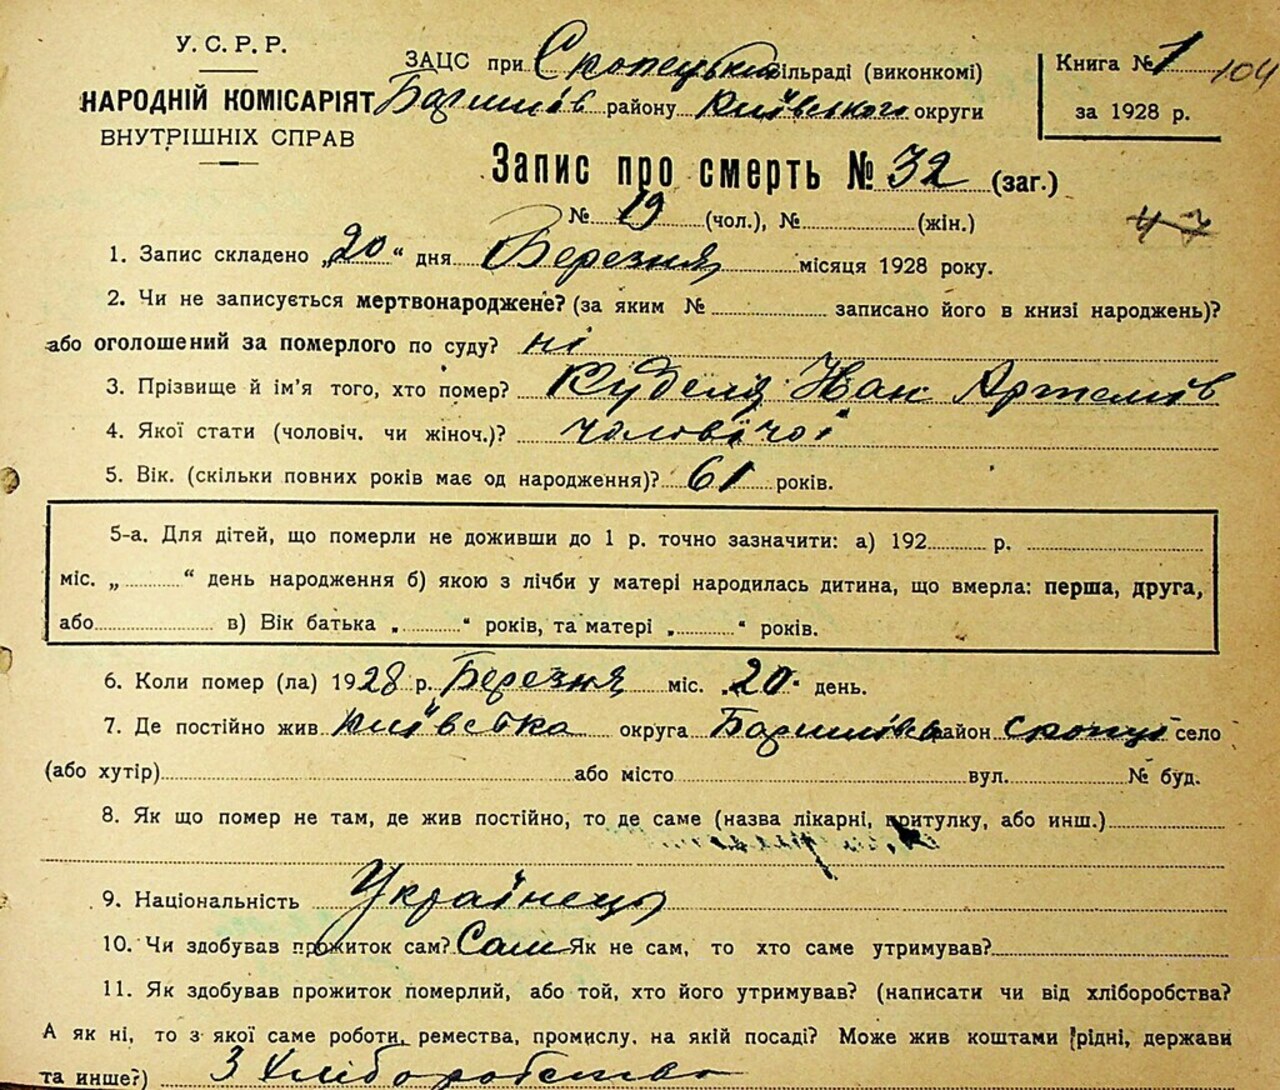 У. С. Р. Р.
НАРОДНІЙ КОМІСАРІЯТ
ВНУТРІШНІХ СПРАВ
ЗАЦС при Скопецький сільраді (виконкомі)
Баришів району Київського округи
Книга № 1 104
за 1928 р.
Запис про смерть № 32 (заг.)
№ 19 (чол.), № (жін.)
47
1. Запис складено „20“ дня Березня місяця 1928 року.
2. Чи не записується мертвонароджене? (за яким № записано його в книзі народжень)?
або оголошений за померлого по суду? ні
3. Прізвище й ім’я того, хто помер? Куделя Іван Артемів
4. Якої стати (чоловіч. чи жіноч.)? чоловічої
5. Вік. (скільки повних років має од народження)? 61 років.
5-а. Для дітей, що померли не доживши до 1 р. точно зазначити: а) 192 р.
міс. „ “ день народження б) якою з лічби у матері народилась дитина, що вмерла: перша, друга,
або в) Вік батька „ “ років, та матері „ “ років.
6. Коли помер (ла) 1928 р. Березня міс. „20“ день.
7. Де постійно жив Київська округа Баришівсь район Скопці село
(або хутір) або місто вул. № буд.
8. Як що помер не там, де жив постійно, то де саме (назва лікарні, притулку, або инш.)
9. Національність Українець
10. Чи здобував прожиток сам? Сам Як не сам, то хто саме утримував?
11. Як здобував прожиток померлий, або той, хто його утримував? (написати чи від хліборобства?
А як ні, то з якої саме роботи, ремества, промислу, на якій посаді? Може жив коштами рідні, держави
та инше?) З Хліборобства